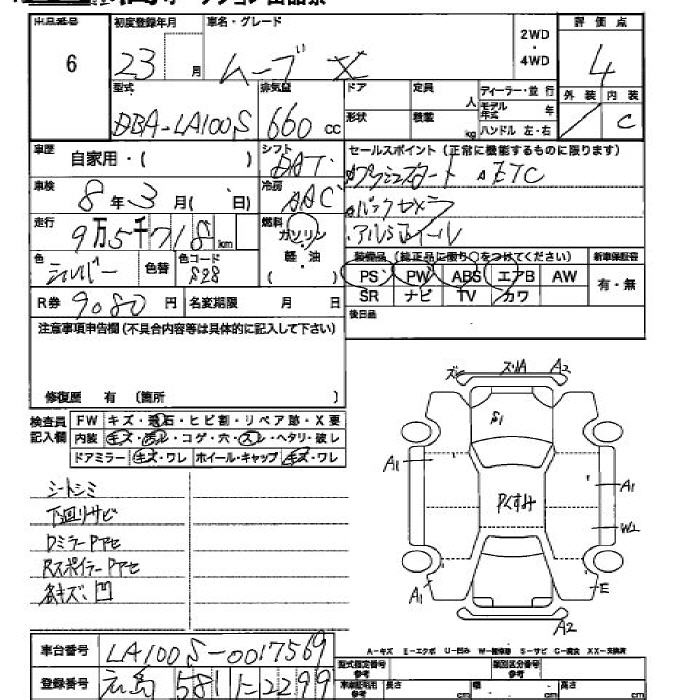 出品番号 初度登録年月 車名・グレード 2WD・4WD 評価点
6 23 月 ムーブ X 4
型式 排気量 ドア 定員 人 ディーラー・並行 外装 内装
DBA-LA100S 660 cc 形状 積載 kg モデル年式 年 C
ハンドル 左・右
車歴 自家用・( ) シフト セールスポイント(正常に機能するものに限ります)
プッシュスタート ETC
車検 8年3月( 日) 冷房 AAC バックカメラ
走行 9万5千718km 燃料 ガソリン アルミホイール
軽・油 ( ) 装備品(純正品に限り○をつけてください) 新車保証書
色 シルバー 色替 色コード S28 PS PW ABS エアB AW 有・無
R券 9080円 名変期限 月 日 SR ナビ TV カワ
注意事項申告欄(不具合内容等は具体的に記入して下さい) 後日品
修復歴 有 (箇所 )
検査員記入欄 FW キズ・飛石・ヒビ割・リペア跡・X要
内装 キズ・汚レ・コゲ・穴・スレ・ヘタリ・破レ
ドアミラー キズ・ワレ ホイール・キャップ キズ・ワレ
シートシミ
下回リサビ
DミラーPアセ
RスポイラーPアセ
各キズ、凹
A2
S1
A1
A1
Pくすみ
W2
A1
E
A2
A-キズ E-エクボ U-凹み W-補修跡 S-サビ C-腐食 XX-交換済
車台番号 LA100S-0017569 型式指定番号 参考 類別区分番号 参考
登録番号 広島 581 に 2299 車庫証明用 参考 長さ cm 幅 cm 高さ cm